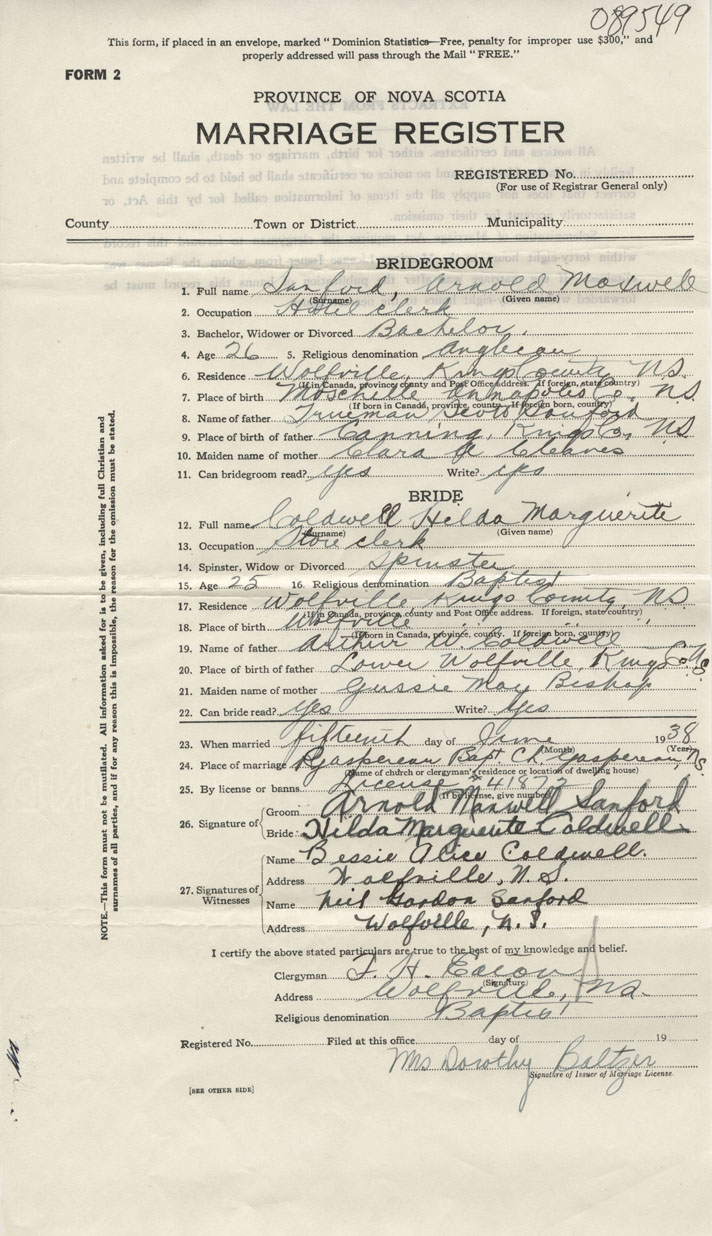 089549
This form, if placed in an envelope, marked "Dominion Statistics—Free, penalty for improper use $300," and
properly addressed will pass through the Mail "FREE."
FORM 2
PROVINCE OF NOVA SCOTIA
MARRIAGE REGISTER
REGISTERED No.
(For use of Registrar General only)
County Town or District Municipality
BRIDEGROOM
1. Full name Sanford, Arnold Maxwell
(Surname) (Given name)
2. Occupation Hotel clerk
3. Bachelor, Widower or Divorced Bachelor.
4. Age 26 5. Religious denomination Anglican
6. Residence Wolfville, Kings County N.S.
(If in Canada, province, county and Post Office address. If foreign, state country)
7. Place of birth Moschelle Annapolis Co. N.S.
(If born in Canada, province, county. If foreign born, country)
8. Name of father Trueman Sanford
9. Place of birth of father Canning, Kings Co., N.S.
10. Maiden name of mother Clara Cleaves
11. Can bridegroom read? yes Write? yes
BRIDE
12. Full name Coldwell Hilda Marguerite
(Surname) (Given name)
13. Occupation Store clerk
14. Spinster, Widow or Divorced Spinster
15. Age 25 16. Religious denomination Baptist
17. Residence Wolfville, Kings County, N.S.
(If in Canada, province, county and Post Office address. If foreign, state country)
18. Place of birth Wolfville " " "
(If born in Canada, province, county. If foreign born, country)
19. Name of father Arthur W Coldwell
20. Place of birth of father Lower Wolfville, Kings Co. N.S.
21. Maiden name of mother Gussie May Bishop
22. Can bride read? yes Write? yes
23. When married fifteenth day of June 1938
(Month) (Year)
24. Place of marriage Gaspereau Bapt. Ch. Gaspereau N.S.
(Name of church or clergyman's residence or location of dwelling house)
25. By license or banns License #41873
(If by license, give number)
26. Signature of Groom Arnold Maxwell Sanford
Bride Hilda Marguerite Coldwell
27. Signatures of Witnesses
Name Bessie Alice Coldwell.
Address Wolfville, N.S.
Name Neil Gordon Sanford
Address Wolfville, N.S.
I certify the above stated particulars are true to the best of my knowledge and belief.
Clergyman F. H. Eaton
(Signature)
Address Wolfville, N.S.
Religious denomination Baptist
Registered No. Filed at this office day of 19
Mrs Dorothy Baltzer
Signature of Issuer of Marriage License.
[SEE OTHER SIDE]
NOTE.—This form must not be mutilated. All information asked for is to be given, including full Christian and
surnames of all parties, and if for any reason this is impossible, the reason for the omission must be stated.